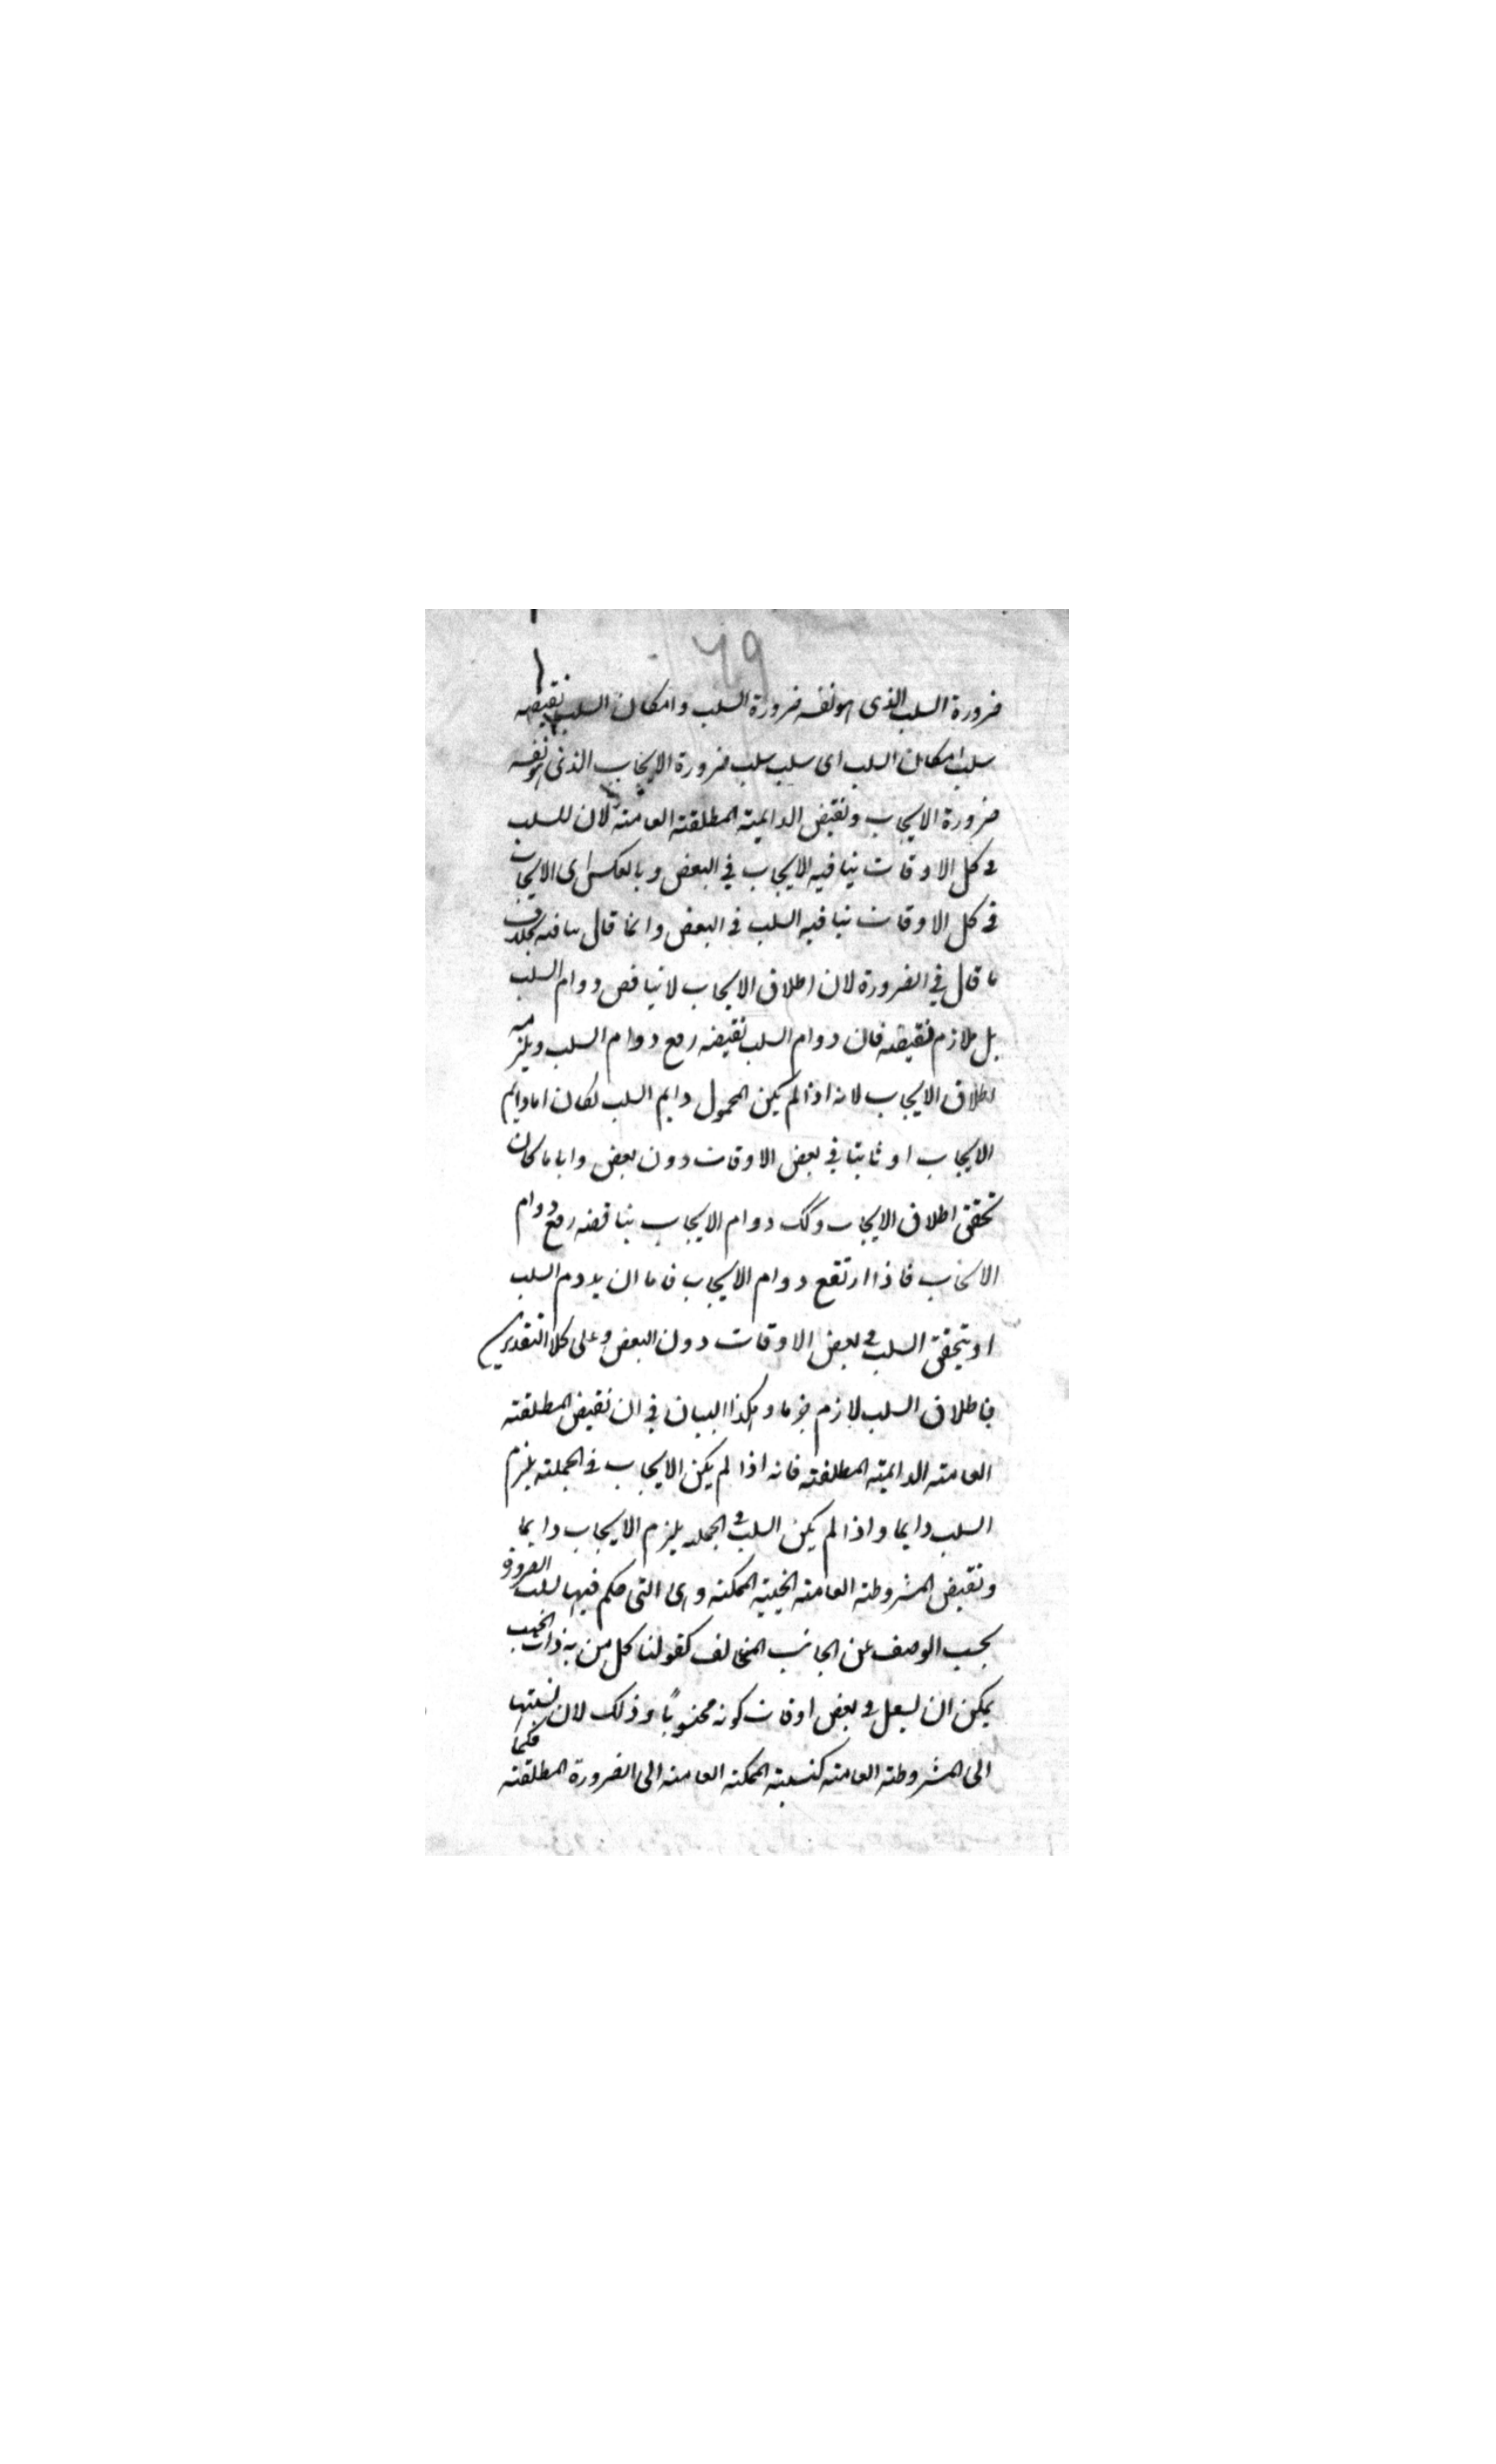 ٦٩
ضرورة السلب الذى هو نفس ضرورة السلب وامكان السلب نقيضه
سلب امكان السلب اى سلب سلب ضرورة الايجاب الذى هو نفس
ضرورة الايجاب ونقيض الدايمة المطلقة العامة لان للسلب
فى كل الاوقات ينافيه الايجاب فى البعض وبالعكس اى الايجاب
فى كل الاوقات ينافيه السلب فى البعض وانما قال ينافيه بخلاف
ما قال فى الضرورة لان اطلاق الايجاب لا يناقض دوام السلب
بل يلازم نقيضه فان دوام السلب نقيضه رفع دوام السلب ويلزمه
اطلاق الايجاب لانه اذا لم يكن المحمول دايم السلب لكان اما دايم
الايجاب او ثابتا فى بعض الاوقات دون بعض وايا ما كان
تحقق اطلاق الايجاب وكك دوام الايجاب يناقضه رفع دوام
الايجاب فاذا ارتفع دوام الايجاب فاما ان يدوم السلب
او يتحقق السلب فى بعض الاوقات دون البعض وعلى كلا التقديرين
فاطلاق السلب لازم جزما وهكذا البيان فى ان نقيض المطلقة
العامة الدايمة المطلقة فانه اذا لم يكن الايجاب فى الجملة يلزم
السلب دايما واذا لم يكن السلب فى الجملة يلزم الايجاب دايما
ونقيض المشروطة العامة الحينية الممكنة وهى التى حكم فيها بسلب الضرورة
بحسب الوصف عن الجانب المخالف كقولنا كل من به ذات الجنب
يمكن ان يسعل فى بعض اوقات كونه مجنوبًا وذلك لان نسبتها
الى المشروطة العامة كنسبة الممكنة العامة الى الضرورة المطلقة فكما